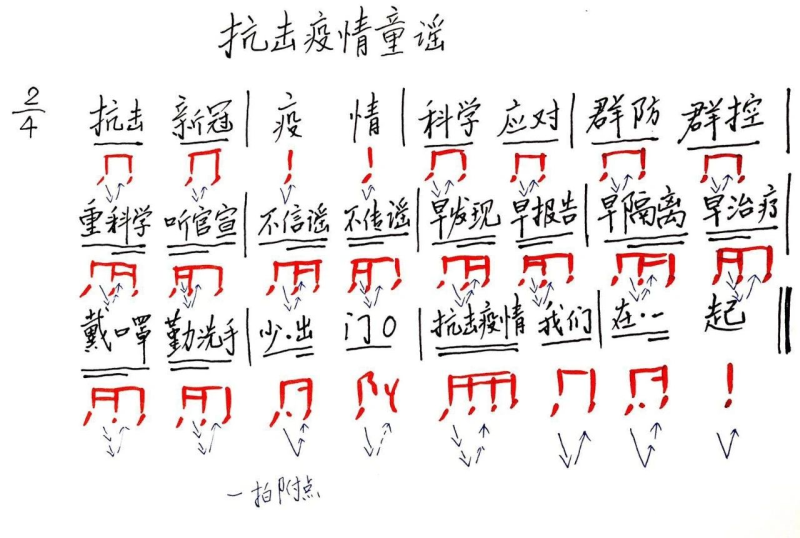 抗击疫情童谣
2/4 抗击 新冠 | 疫 情 | 科学 应对 | 群防 群控 |
重科学 听官宣 | 不信谣 不传谣 | 早发现 早报告 | 早隔离 早治疗
戴口罩 勤洗手 | 少·出 门0 | 抗击疫情 我们 | 在·一 起 ‖
一拍附点